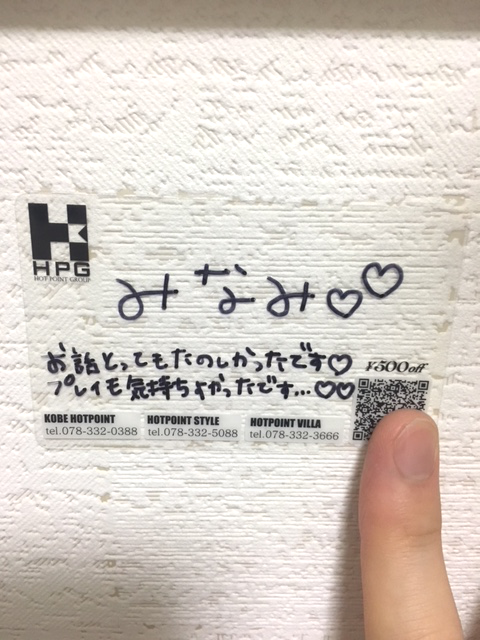 HPG
HOT POINT GROUP
みなみ♡♡
お話とってもたのしかったです♡
プレイも気持ちよかったです...♡♡
¥500off
KOBE HOTPOINT
tel.078-332-0388
HOTPOINT STYLE
tel.078-332-5088
HOTPOINT VILLA
tel.078-332-3666